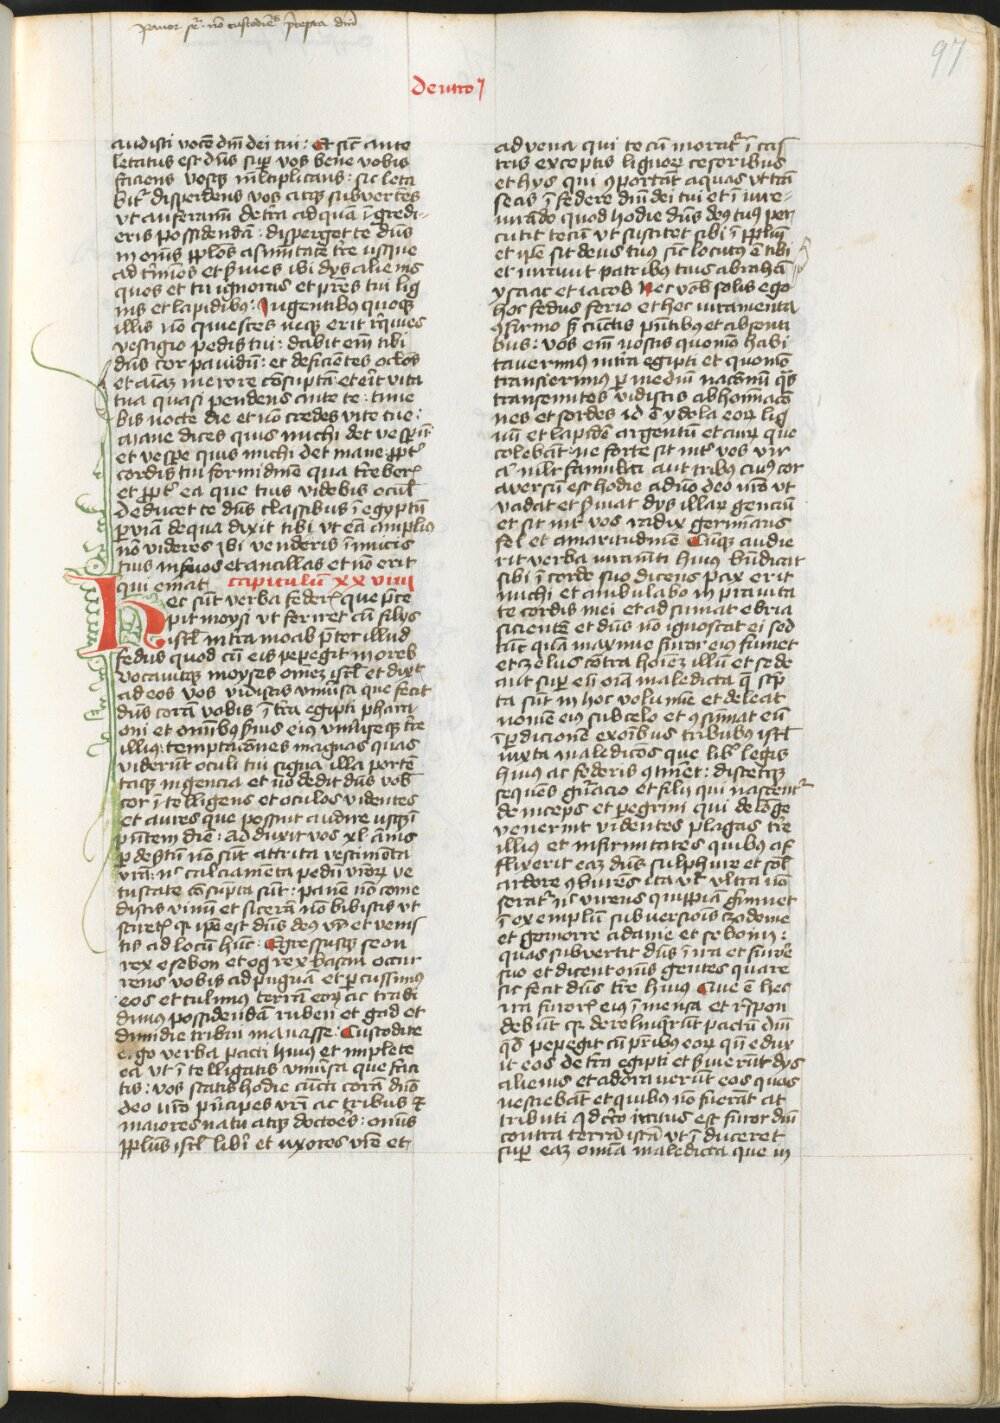 pavor sup. nō custodiētes p̄cepta dn̄i
97
Deutro
audisti vocē dn̄i dei tui : Et sic̄ ante
letatus est dn̄s sup̱ vos bene vobis
faciens vosq̨ ml̄tiplicans : sic leta
bit᷑ disperdens vos atq̨ subvertēs
vt auferamī de t̄ra ad quā ī gredi-
eris possidendā : disperget te dūs
in om̄s pp̄los a sum̄itate t̄re usque
ad t̄mīos et s̄vies ibi dijs alienis
quos et tu ignoras et pr̄es tui lig
nis et lapidibꝰ : In gentibus quoq̨
illis nō qiuesces neq̨ erit rꝗuies
vestigio pedis tui : dabit em̄ tibi
dūs cor pauidū : et deficiētes oclōs
et aīaꝫ merore cōsuptā et eīt vita
tua quasi pendens ante te : time
bis nocte die et nō credes vite tue :
mane dices quis michi det vesp̱ū
et vesp̱e quis michi det mane pp̄t᷑
cordis tui formidinē qua t̄reber᷑
et pp̄t᷑ ea que tuis videbis ocul᷑
Deducet te dūs classibus ī egyptū
p̱ viā de qua dixit tibi vt eā ampliꝰ
nō videres ibi venderis īimicis
tuis in s̄uos et ancillas et nō erit
qui emat Capitulū xx viiii
Hec sūt verba feder᷑ que p̄ce
pit moysi vt feriret cū filijs
isrl̄ in t̄ra moab p̄ter illud
fedus quod cū eis pepegit in oreb
Vocauitq̨ moyses om̄eꝫ isrl̄ et dixit
ad eos vos vidistis vniūsa que fecit
dūs corā vobis ī t̄ra egipti phara
oni et omībꝰ s̄uis eiꝰ vniūseq̨ t̄re
illiꝰ temptacōnes magnas quas
viderūt oculi tui signa illa portē
taq̨ ingencia et nō dedit dūs vob᷑
cor ītelligens et oculos videntes
et aures que possint audire usq̨ ī
p̄ntem diē : Adduxit vos xl ānis
p̱ desertū nō sūt attrita vestimēta
vr̄a : nc̄ calciamēta pedū vr̄oꝝ ve
tustate cōsūpta sūt : panē nō come
distis vinū et sicerā nō bibistis vt
sciretis q̨ ip̄e est dūs deꝰ vr̄ et venis
tis ad locū hūc : Egressusq̨ seon
rex esebon et og rex basan occur
rens vobis ad pugnā et p̱cussimꝰ
eos et tulimꝰ terrā eoꝝ ac tradi
dimꝰ possidendā ruben et gad et
dimidie tribui manasse : Custodite
ergo verba pacti huiꝰ et implete
ea vt ītelligatis vniūsa que faci
tis : vos statis hodie cūcti corā dn̄o
deo vr̄o p̄ncipes vr̄i ac tribus ⁊
maiores natu atq̨ doctoēs : om̄is
pp̄lus isrl̄ libr̄i et uxores vr̄e et
advena qui tecū morat᷑ ī cas
tris exceptis lignoꝝ cesoribus
et hijs qui ꝯportāt aquas vt trā
seas ī federe dn̄i dei tui et ī iure-
iurādo quod hodie dūs deꝰ tuꝰ per
cutit tecū vt suscitet sibi ī pp̄lm̄
et ip̄e sit deus tuꝰ sic̄ locutꝰ ē tibi
et iurauit patribus tuis abrahā
ysaac et iacob Nec vob᷑ solis ego
hoc fedus ferio et hec iuramenta
ꝯfirmo s̄ cūctis p̄ntibꝰ et absenti
bus : vos em̄ nostis quomō habi
tauerimꝰ in t̄ra egipti et quomō
transierimꝰ p̱ mediū nacōnū q̄s
transeuntes vidistis abhominacō
nes et sordes id ē ydola eoꝝ lig
nū et lapidē argentū et auꝝ que
colebāt : ne forte sit int᷑ vos vir
aut ml̄r familia aut tribꝰ cuiꝰ cor
aversū est hodie a dn̄o deo vr̄o vt
vadat et s̄uiat dijs illaꝝ genciū
et sit int᷑ vos radix germinās
fel et amaritudinē Cūq̨ audie
rit verba iuramēti huiꝰ bn̄dicat
sibi ī corde suo dicens pax erit
michi et ambulabo in prauita
te cordis mei et adsumat ebria
sicientē et dūs nō ignoscat ei sed
tūc quā maxime furor eiꝰ fumet
et zelus cōtra hoīeꝫ illū et sede
ant sup̱ eū oīa maledicta q̄ scp̄
ta sūt in hoc volumine et deleat
nomē eiꝰ sub celo et ꝯsumat eū
ī p̱dicionē ex oībus tribubus isrl̄
iuxta maledicōēs que libr̄ legis
huiꝰ ac federis ꝯtinet : dicetq̨
sequēs gn̄acio et filij qui nascent᷑
deinceps et peregrini qui de lōge
venerint videntes plagas t̄re
illius et infirmitates quibus af
flixerit eaꝫ dūs sulphure et sol᷑
ardore ꝯburēs ita vt ultra nō
serat᷑ nc̄ virens quippiā gīminet
ī exemplū subversiōis zodome
et gomorre adame et seboim :
quas subvertit dūs ī ira et furōe
suo et dicent om̄s gentes quare
sic fecit dūs t̄re huic Que ē hec
ira furor᷑ eiꝰ īmensa et r̄spon
debūt q̨ dereliquer̄ūt pactū dn̄i
qd̄ pepegit cū pr̄ibus eoꝝ qn̄ edux
it eos de t̄ra egipti et s̄uierūt dijs
alienis et adorauerūt eos quos
nesciebāt et quibus nō fuerāt at
tributi idcīrco iratus est furor dn̄i
contra terrā istā vt īduceret
sup̱ eaꝫ omīa maledicta que in